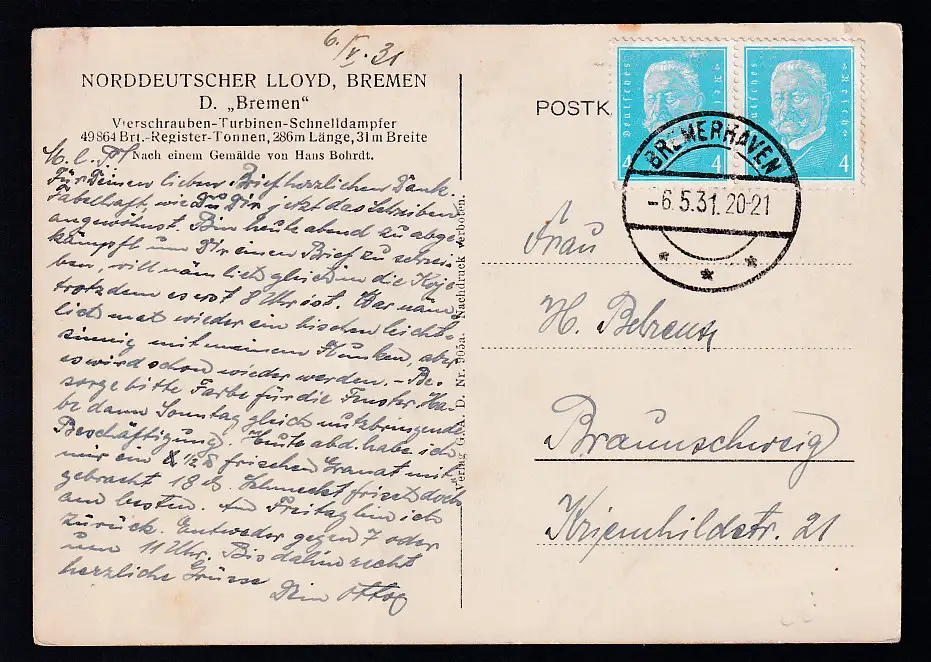 6./V.31
NORDDEUTSCHER LLOYD, BREMEN
D. „Bremen“
Vierschrauben-Turbinen-Schnelldampfer
49864 Brt.-Register-Tonnen, 286m Länge, 31m Breite
Nach einem Gemälde von Hans Bohrdt.
M. l.
Für Deinen lieben Brief herzlichen Dank.
Fabelhaft, wie Du Dir jetzt das Schreiben
angewöhnst. Bin heute abend zu abge-
kämpft um Dir einen Brief zu schrei-
ben, will nämlich gleich in die Koje
trotzdem es erst 8 Uhr ist. War näm-
lich mal wieder ein bischen leicht-
sinnig mit meinem, aber
es wird schon wieder werden. - Be-
sorge bitte Farbe für die Fenster. Ha-
be dann Sonntag gleich nutzbringende
Beschäftigung. Heute abd. habe ich
mir ein 1/2 frischen Granat mit-
gebracht 18 d. Schmeckt frisch doch
am besten. Am Freitag bin ich
zurück. Entweder gegen 7 oder
um 11 Uhr. Bis dahin recht
herzliche Grüsse
Dein Otto
Verlag G. A. D. Nr. 905a. Nachdruck verboten.
POSTK
Deutsches Reich
4
4
Deutsches Reich
4
BREMERHAVEN
-6.5.31.20-21
* * *
Frau
H. Behrens
Braunschweig
Kriemhildstr. 21